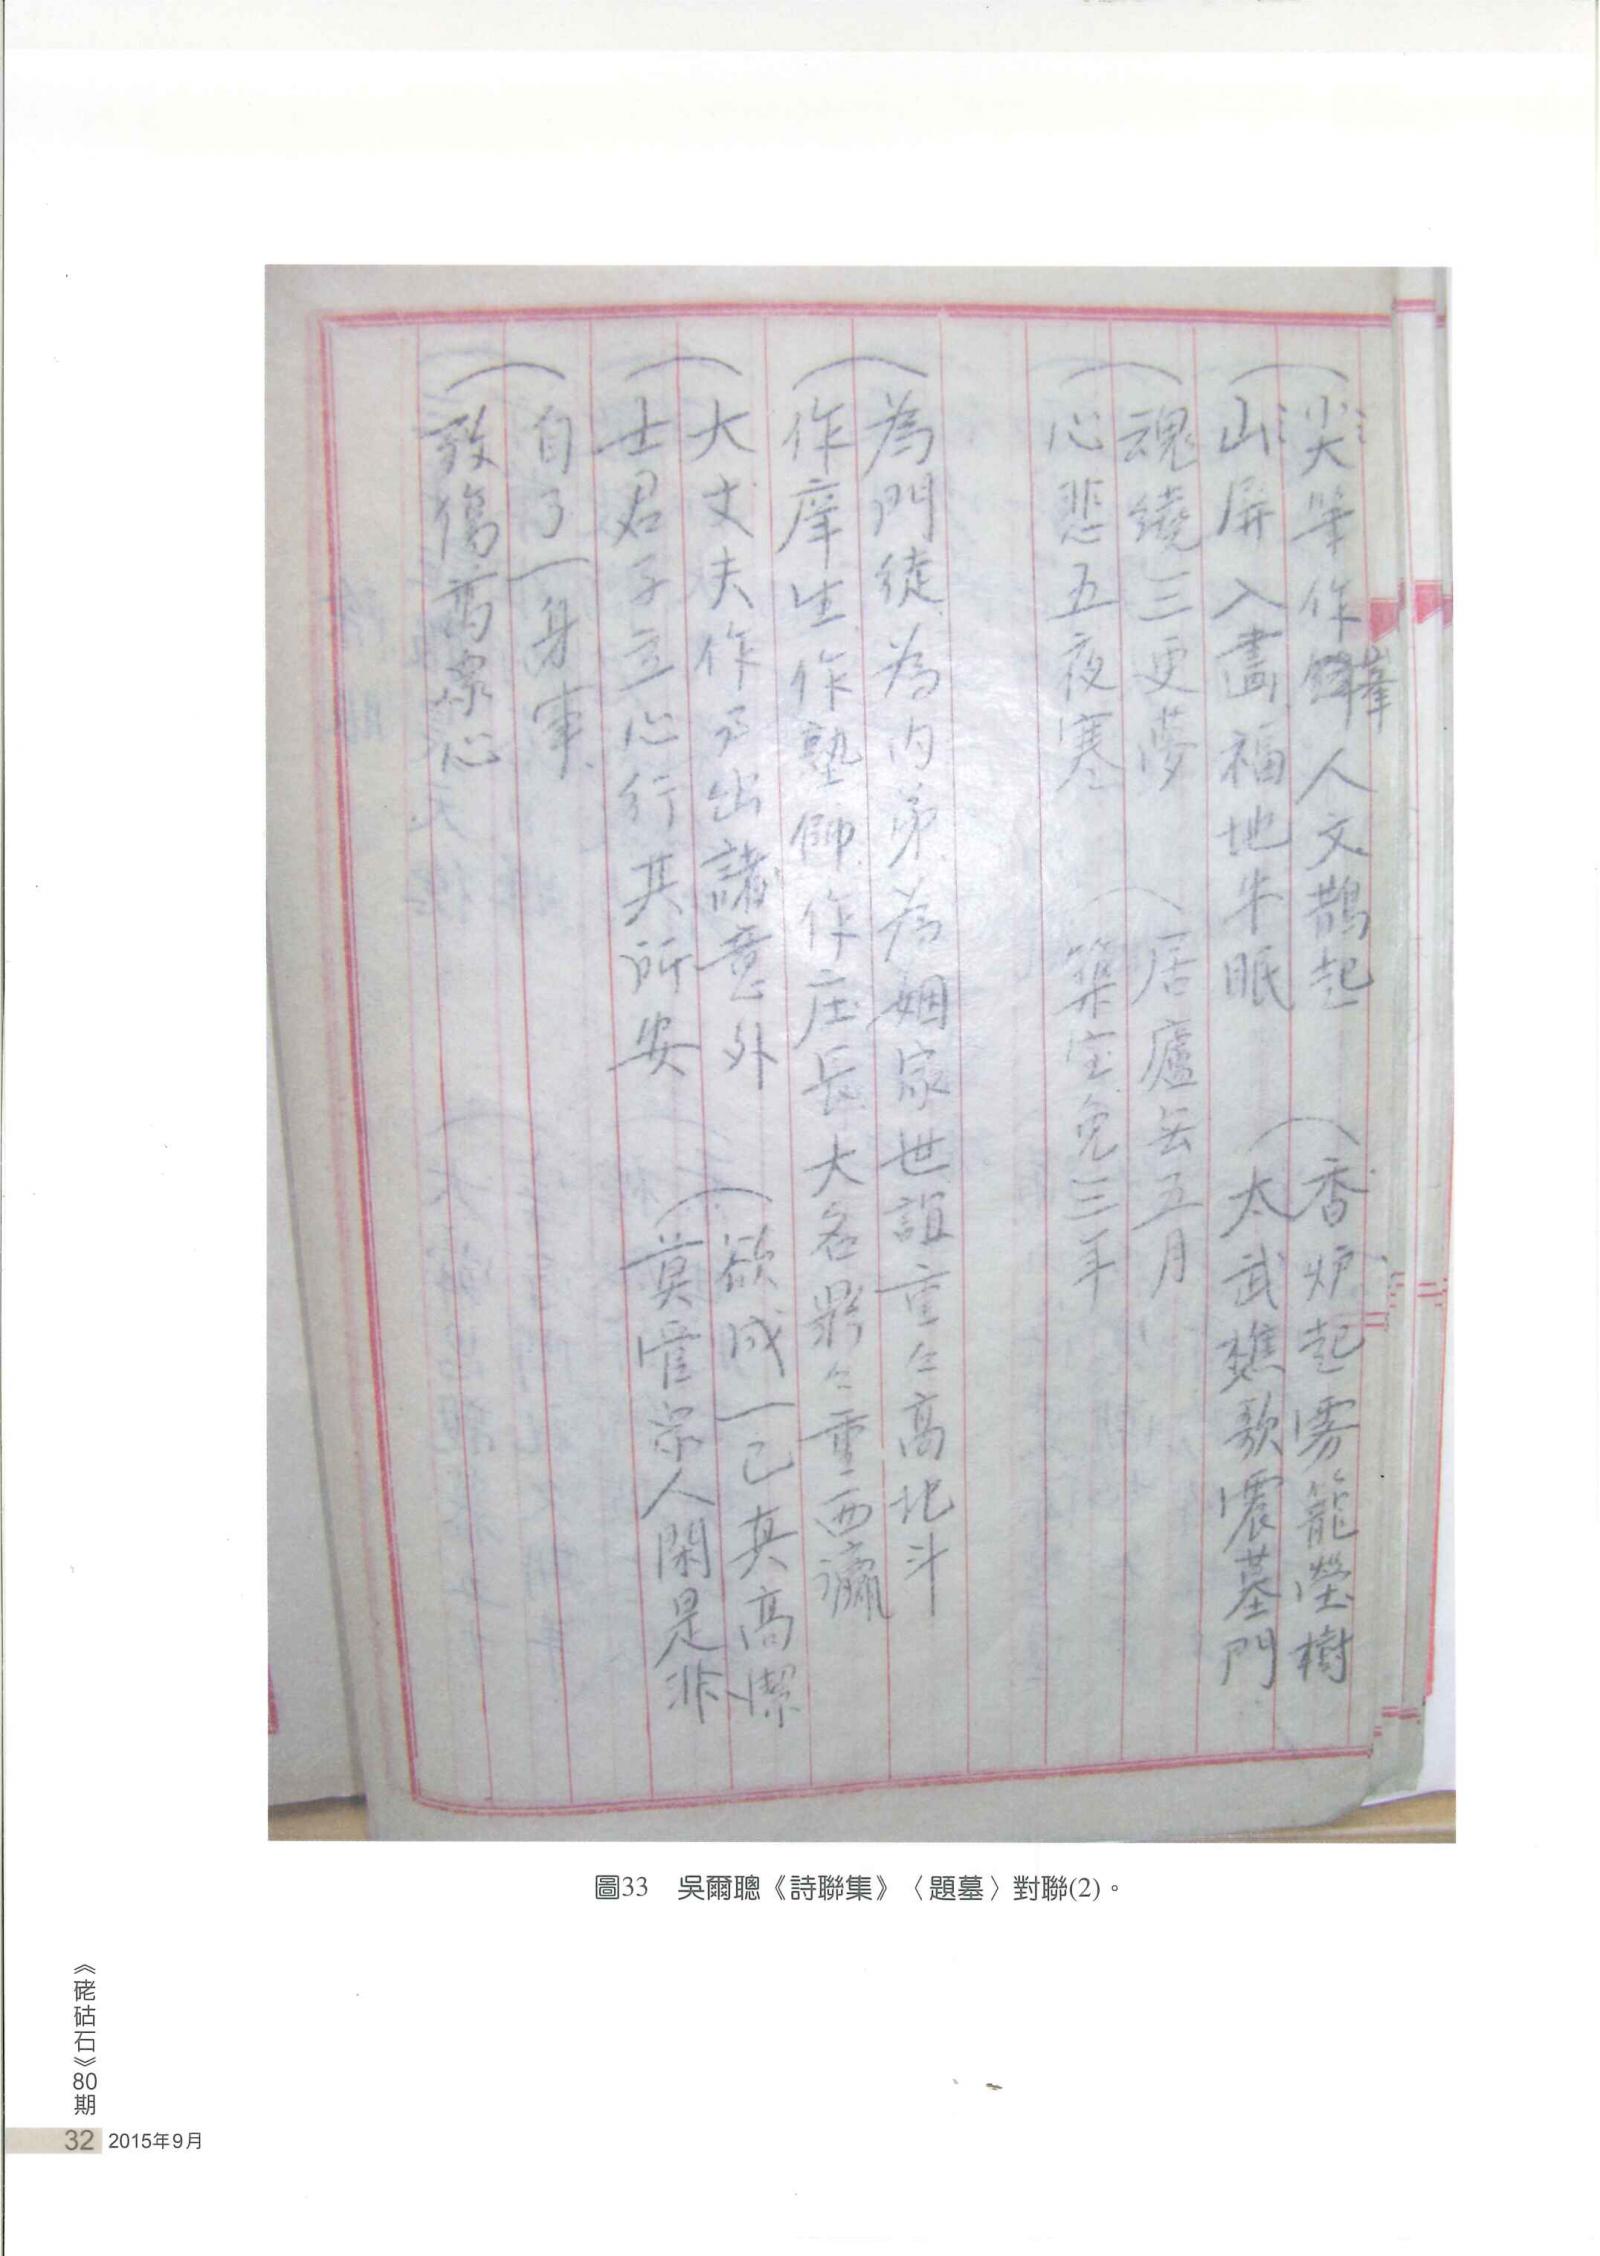 尖筆作峯人文鵲起
山屏入畵福地牛眠
香炉起雾籠塋樹
太武樵歌震墓門
魂繞三更夢
心悲五夜寒
居廬去五月
築室免三年
為門徒為内弟為姻家世誼重々高北斗
作庠生作塾師作庄長大名鼎々重西瀛
大丈夫作事出諸意外
士君子立心行其所安
欲成一己真高潔
莫管宗人閑是非
自了一身事
致傷萬眾心
圖33 吳爾聰《詩聯集》〈題墓〉對聯(2)。
《硓𥑮石》80期
32 2015年9月